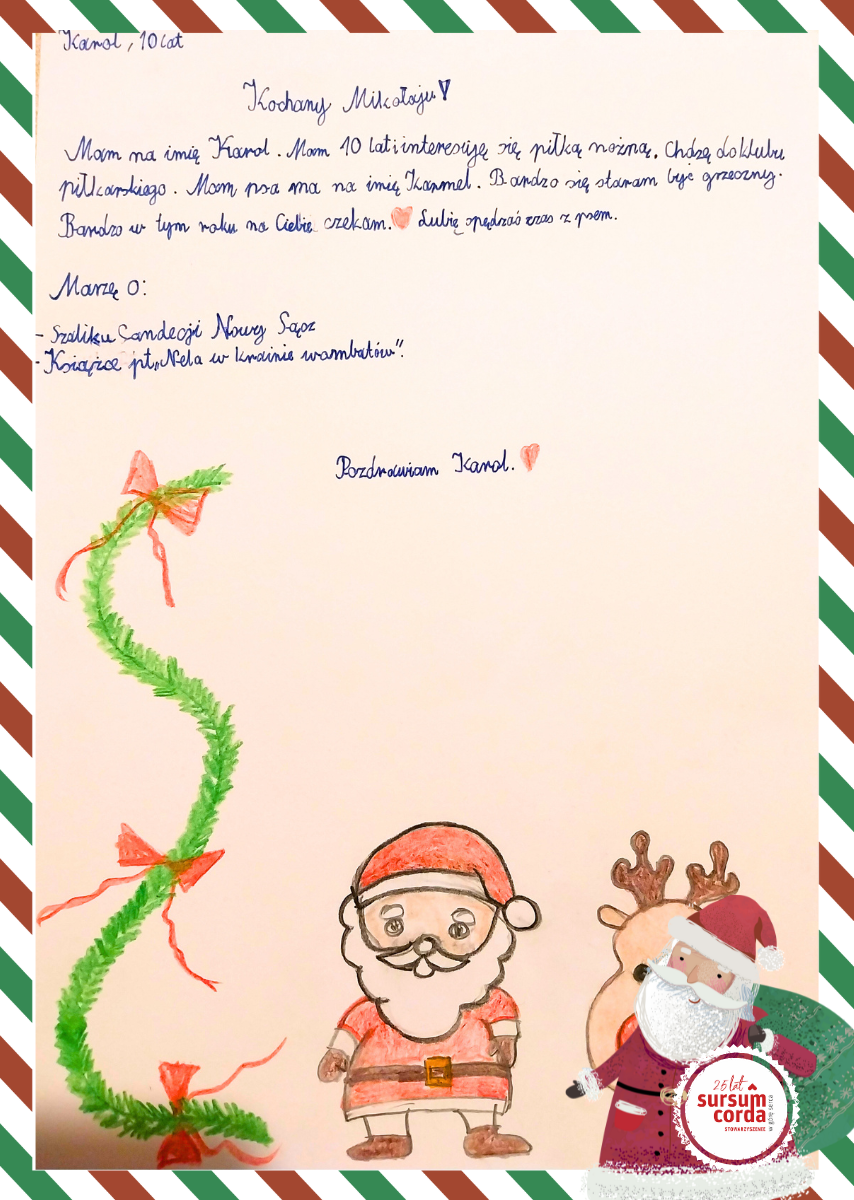 Karol, 10 lat
Kochany Mikołaju!
Mam na imię Karol. Mam 10 lat i interesuję się piłką nożną. Chdzę do klubu
piłkarskiego. Mam psa ma na imię Karmel. Bardzo się staram być grzeczny.
Bardzo w tym roku na Ciebie czekam. Lubię spędzać czas z psem.
Marzę o:
- Szaliku Sandecji Nowy Sącz
- Książce pt„Nela w krainie wombatów".
Pozdrawiam Karol.
26 lat
sursum
corda
STOWARZYSZENIE
w górę serca